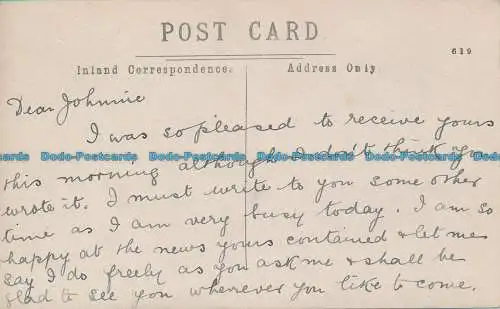 POST CARD
619
Inland Correspondence.
Address Only
Dear Johnnie
I was so pleased to receive yours
this morning although I don't think you
Dodo-Postcards Dodo-Postcards Dodo-Postcards Dodo-Postcards Dodo-Postcards
wrote it. I must write to you some other
time as I am very busy today. I am so
happy at the news yours contained & let me
say I do freely as you ask me & shall be
glad to see you whenever you like to come.